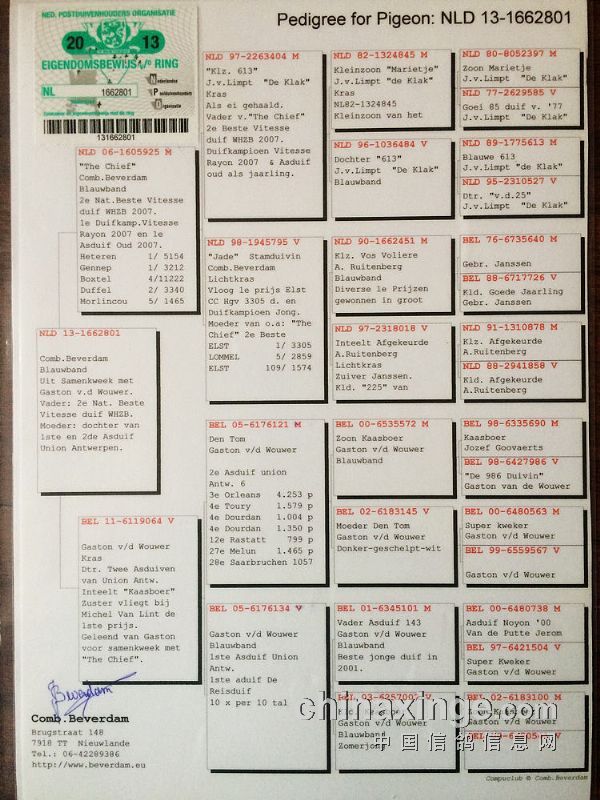 Pedigree for Pigeon: NLD 13-1662801
NED. POSTDUIVENHOUDERS ORGANISATIE
20 13
EIGENDOMSBEWIJS 1/0 RING
NL
1662801
Nederlandse
Postduivenhouders
Organisatie
131662801
NLD 06-1605925 M
"The Chief"
Comb.Beverdam
Blauwband
2e Nat.Beste Vitesse
duif WHZB 2007.
1e Duifkamp.Vitesse
Rayon 2007 en 1e
Asduif Oud 2007.
Heteren 1/ 5154
Gennep 1/ 3212
Boxtel 4/11222
Duffel 2/ 3340
Morlincou 5/ 1465
NLD 13-1662801
Comb.Beverdam
Blauwband
Uit Samenkweek met
Gaston v.d Wouwer.
Vader: 2e Nat. Beste
Vitesse duif WHZB.
Moeder: dochter van
1ste en 2de Asduif
Union Antwerpen.
BEL 11-6119064 V
Gaston v/d Wouwer
Kras
Dtr. Twee Asduiven
van Union Antw.
Inteelt "Kaasboer"
Zuster vliegt bij
Michel Van Lint de
1ste prijs.
Geleend van Gaston
voor samenkweek met
"The Chief".
NLD 97-2263404 M
"Klz. 613"
J.v.Limpt "De Klak"
Kras
Als ei gehaald.
Vader v."The Chief"
2e Beste Vitesse
duif WHZB 2007.
Duifkampioen Vitesse
Rayon 2007 & Asduif
oud als jaarling.
NLD 98-1945795 V
"Jade" Stamduivin
Comb.Beverdam
Lichtkras
Vloog 1e prijs Elst
CC Hgv 3305 d. en
Duifkampioen Jong.
Moeder van o.a: "The
Chief" 2e Beste
ELST 1/ 3305
LOMMEL 5/ 2859
ELST 109/ 1574
BEL 05-6176121 M
Den Tom
Gaston v/d Wouwer
2e Asduif union
Antw. 6
3e Orleans 4.253 p
4e Toury 1.579 p
4e Dourdan 1.004 p
4e Dourdan 1.350 p
12e Rastatt 799 p
27e Melun 1.465 p
28e Saarbruchen 1057
BEL 05-6176134 V
Gaston v/d Wouwer
Blauwband
1ste Asduif Union
Antw.
1ste aduif De
Reisduif
10 x per 10 tal
NLD 82-1324845 M
Kleinzoon "Marietje"
J.v.Limpt "De Klak"
Kras
NL82-1324845
Kleinzoon van het
NLD 96-1036484 V
Dochter "613"
J.v.Limpt "De Klak"
Blauwband
NLD 90-1662451 M
Klz. Vos Voliere
A. Ruitenberg
Blauwband
Diverse 1e Prijzen
gewonnen in groot
NLD 97-2318018 V
Inteelt Afgekeurde
A.Ruitenberg
Lichtkras
Zuiver Janssen.
Kld. "225" van
BEL 00-6535572 M
Zoon Kaasboer
Gaston v/d Wouwer
Blauwband
BEL 02-6183145 V
Moeder Den Tom
Gaston v/d Wouwer
Donker-geschelpt-wit
BEL 01-6345101 M
Vader Asduif 143
Gaston v/d Wouwer
Blauwband
Beste jonge duif in
2001.
BEL 03-6257007 V
Blauwband
Zomerjong
NLD 80-8052397 M
Zoon Marietje
J.v.Limpt "De Klak"
NLD 77-2629585 V
Goei 85 duif v. '77
J.v.Limpt "De Klak"
NLD 89-1775613 M
Blauwe 613
J.v.Limpt "de Klak"
NLD 95-2310527 V
Dtr. "v.d.25"
J.v.Limpt "De Klak"
BEL 76-6735640 M
Gebr. Janssen
BEL 88-6717726 V
Kld. Goede Jaarling
Gebr. Janssen
NLD 91-1310878 M
Klz. Afgekeurde
A.Ruitenberg
NLD 88-2941858 V
Kld. Afgekeurde
A.Ruitenberg
BEL 98-6335690 M
Kaasboer
Jozef Goovaerts
BEL 98-6427986 V
"De 986 Duivin"
Gaston van de Wouwer
BEL 00-6480563 M
Super kweker
Gaston v/d Wouwer
BEL 99-6559567 V
Gaston v/d Wouwer
BEL 00-6480738 M
Asduif Noyon '00
Van de Putte Jerom
BEL 97-6421504 V
Super Kweker
Gaston v/d Wouwer
BEL 02-6183100 M
Gaston v/d Wouwer
Gaston v/d Wouwer
Beverdam
Comb.Beverdam
Brugstraat 148
7918 TT Nieuwlande
Tel.: 06-42289386
http://www.beverdam.eu
chinaxinge.com
中国信鸽信息网
Compuclub © Comb.Beverdam